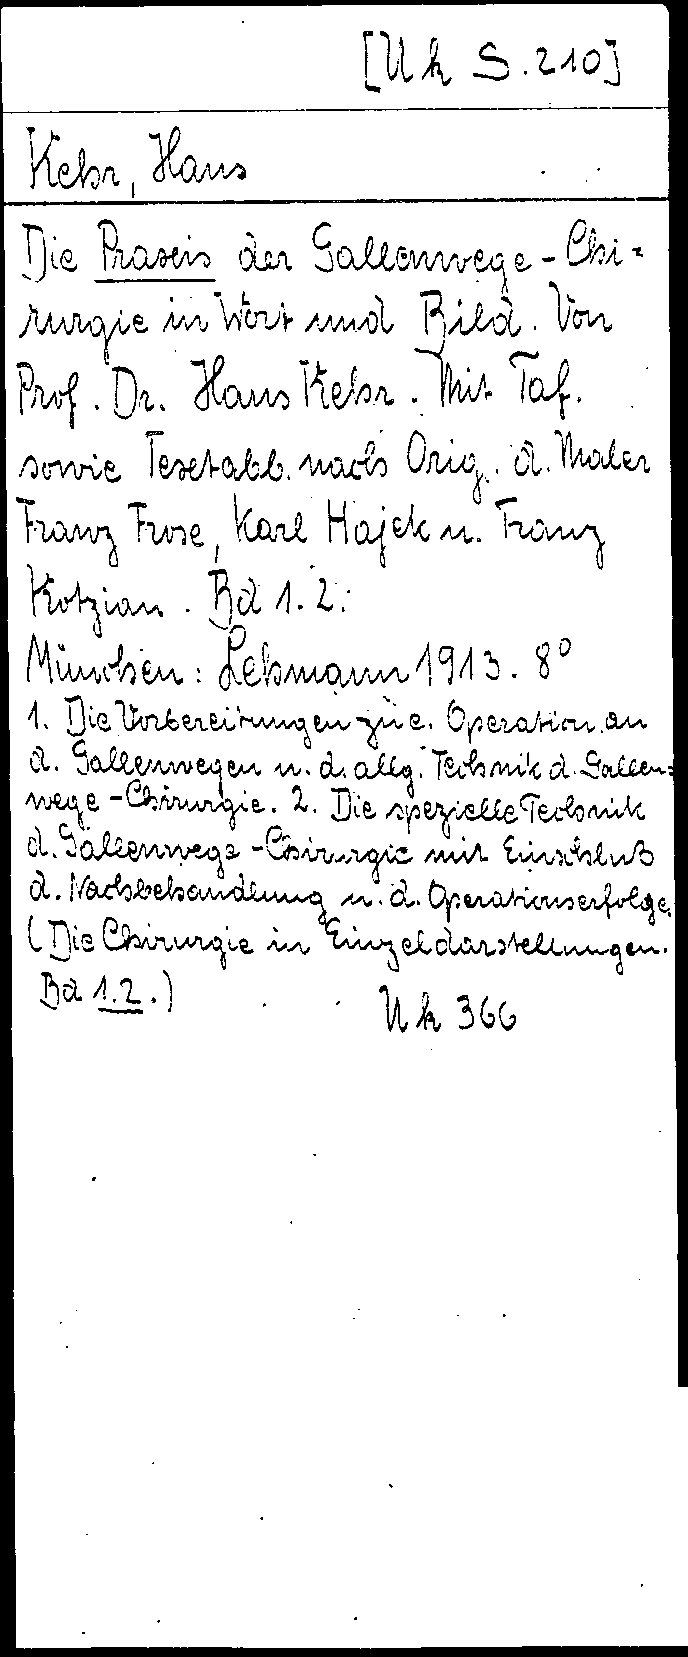 [Uk S. 210]
Kehr, Hans
Die Praxis der Gallenwege-Chi=
rurgie in Wort und Bild. Von
Prof. Dr. Hans Kehr. Mit Taf.
sowie Textabb. nach Orig. d. Maler
Franz Frose, Karl Hajek u. Franz
Kotzian. Bd 1.2.
München: Lehmann 1913. 8°
1. Die Vorbereitungen zu e. Operation an
d. Gallenwegen u. d. allg. Technik d. Gallen=
wege-Chirurgie. 2. Die spezielle Technik
d. Gallenwege-Chirurgie mit Einschluß
d. Nachbehandlung u. d. Operationserfolge.
(Die Chirurgie in Einzeldarstellungen.
Bd 1.2.)
Uk 366